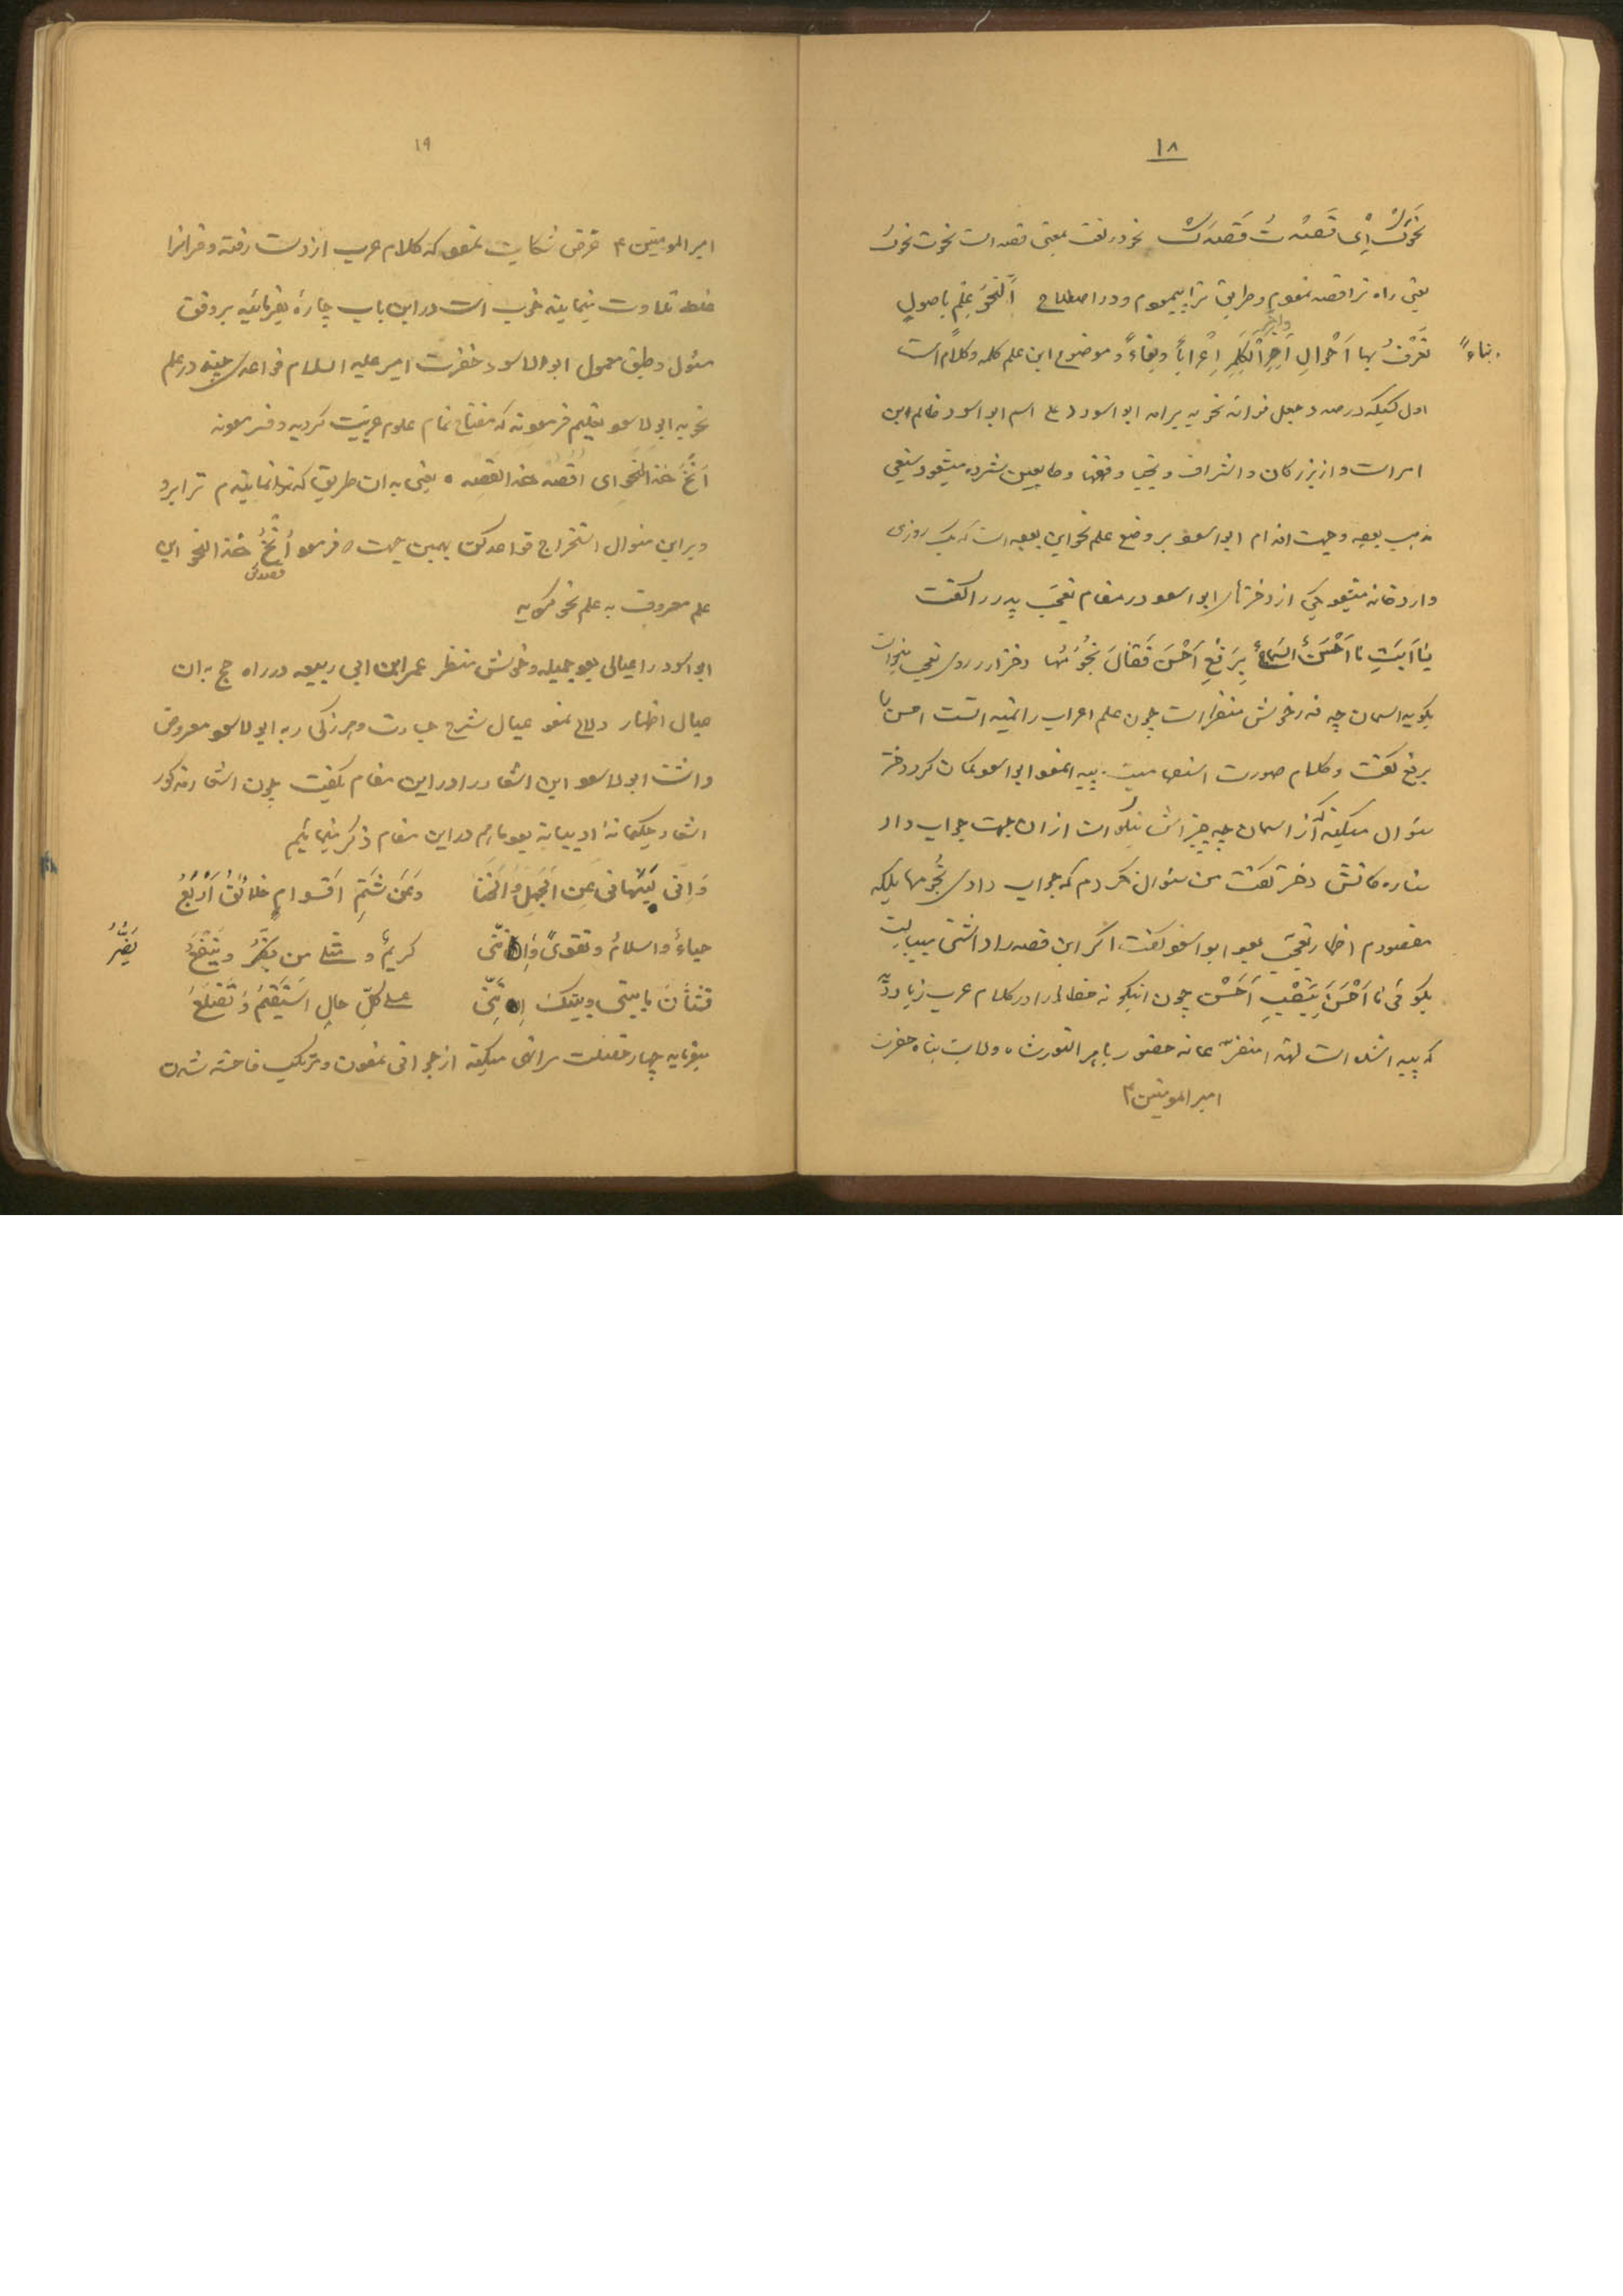 ١٨
نحوكُ اِی قَصَدْتُ قَصْدَكَ نحو در لغت بمعنی قصد است نحوت نحوك
یعنی راه ترا قصد نمودم و طریق ترا پیمودم و در اصطلاح اَلنَّحْوُ عِلْمٌ باصولٍ
تُعْرَفُ بها اَحْوالِ اَخِرِ الْكَلِمِ اِعْراباً و بِناءً و موضوع این علم كلمه و كلام است
بناءً
اول كسیكه در صدد جعل قواعد نحویه برآمد ابو اسود اسم ابو اسود ظالم ابن
است و از بزرگان و اشراف و نجبا و فقها و تابعین شمرده میشود شیعی
مذهب بوده وجهت اقدام ابو اسود بر وضع علم نحو این بوده است كه یك روزی
وارد خانه میشود یكی از دخترهای ابو اسود در مقام تعجّب پدر را گفت
یٰا اَبَتِ ما اَحْسَنُ السَّماءِ بِرَفْعِ اَحْسَن فَقٰالَ نُجُوْمُها دختر از روی تعجب میخواست
بگوید اسمان چه قدر خوش منظر است چون علم اعراب را نمیدانست احسن را
برفع گفت و كلام صورت استفهامیت پیدا نمود ابو اسود گمان كرد دختر
سئوال میكند كه از اسمان چه چیز اش نیكو است از ان جهت جواب داد
ستاره هایش دختر گفت من سئوال نكردم كه جواب دادی نُجُومها بلكه
مقصودم اظهار تعجّب بود ابو اسود گفت اگر این قصد را داشتی میبایست
بگوئی ما اَحْسَنَ بِنَصْبِ اَحْسَن چون اینگونه خطاها را در كلام عرب زیاد دید
كه پیدا شده است لهذا حضور با هر النور شاه ولایت پناه حضرت
امیر المومنین ع
١٩
امیر المومنین ع عرض شكایت نمود كه كلام عرب از دست رفته و قرانرا
غلط تلاوت مینمایند خوب است در این باب چارهٔ بفرمائید بر وفق
مسئول و طبق معمول ابو الاسود حضرت امیر علیه السلام قواعدی چند در علم
نحو به ابو الاسود تعلیم فرمودند كه مفتاح تمام علوم عربیّت گردید و فرمودند
اُنْحُ هٰذا النَّحْو ای اقصد هذا القصد یعنی به ان طریق كه ترا برو
و بر این منوال استخراج قواعد كن بهمین جهت كه فرمود اُنْحُ هٰذا النحو این
علم معروف به علم نحو گردید
ابو اسود را عیالی بود جمیله و خوش منظر عمر ابن ابی ربیعه در راه حج به ان
عیال اظهار نمود عیال شرح جسارت و هرزگی را به ابو الاسود معروض
داشت ابو الاسود این اشعار را در این مقام بگفت چون اشعار مذكور
اشعار حكیمانهٔ ادیبانه بود ماهم در این مقام ذكر مینمائیم
وَاِنّی لَیَنْهانی عَنِ الْجَهْلِ وَالْخَنٰا وَعَنْ شَتْمِ اَقْوامٍ خَلائِقُ اَرْبَعُ
حیاءٌ واسلامٌ وتقویً وَاِنَّنی كریمٌ و مثلی من یَضُرُّ ویَنْفَعُ
یَضُرُّ
فَشَتّانَ ما بینی وبینكَ اِنَّنی علی كلِّ حالٍ اَسْتَقیمُ وَتَضْلَعُ
میفرماید چهار خصلت مرا نهی میكند از نمودن و مرتكب فاحشه شدن